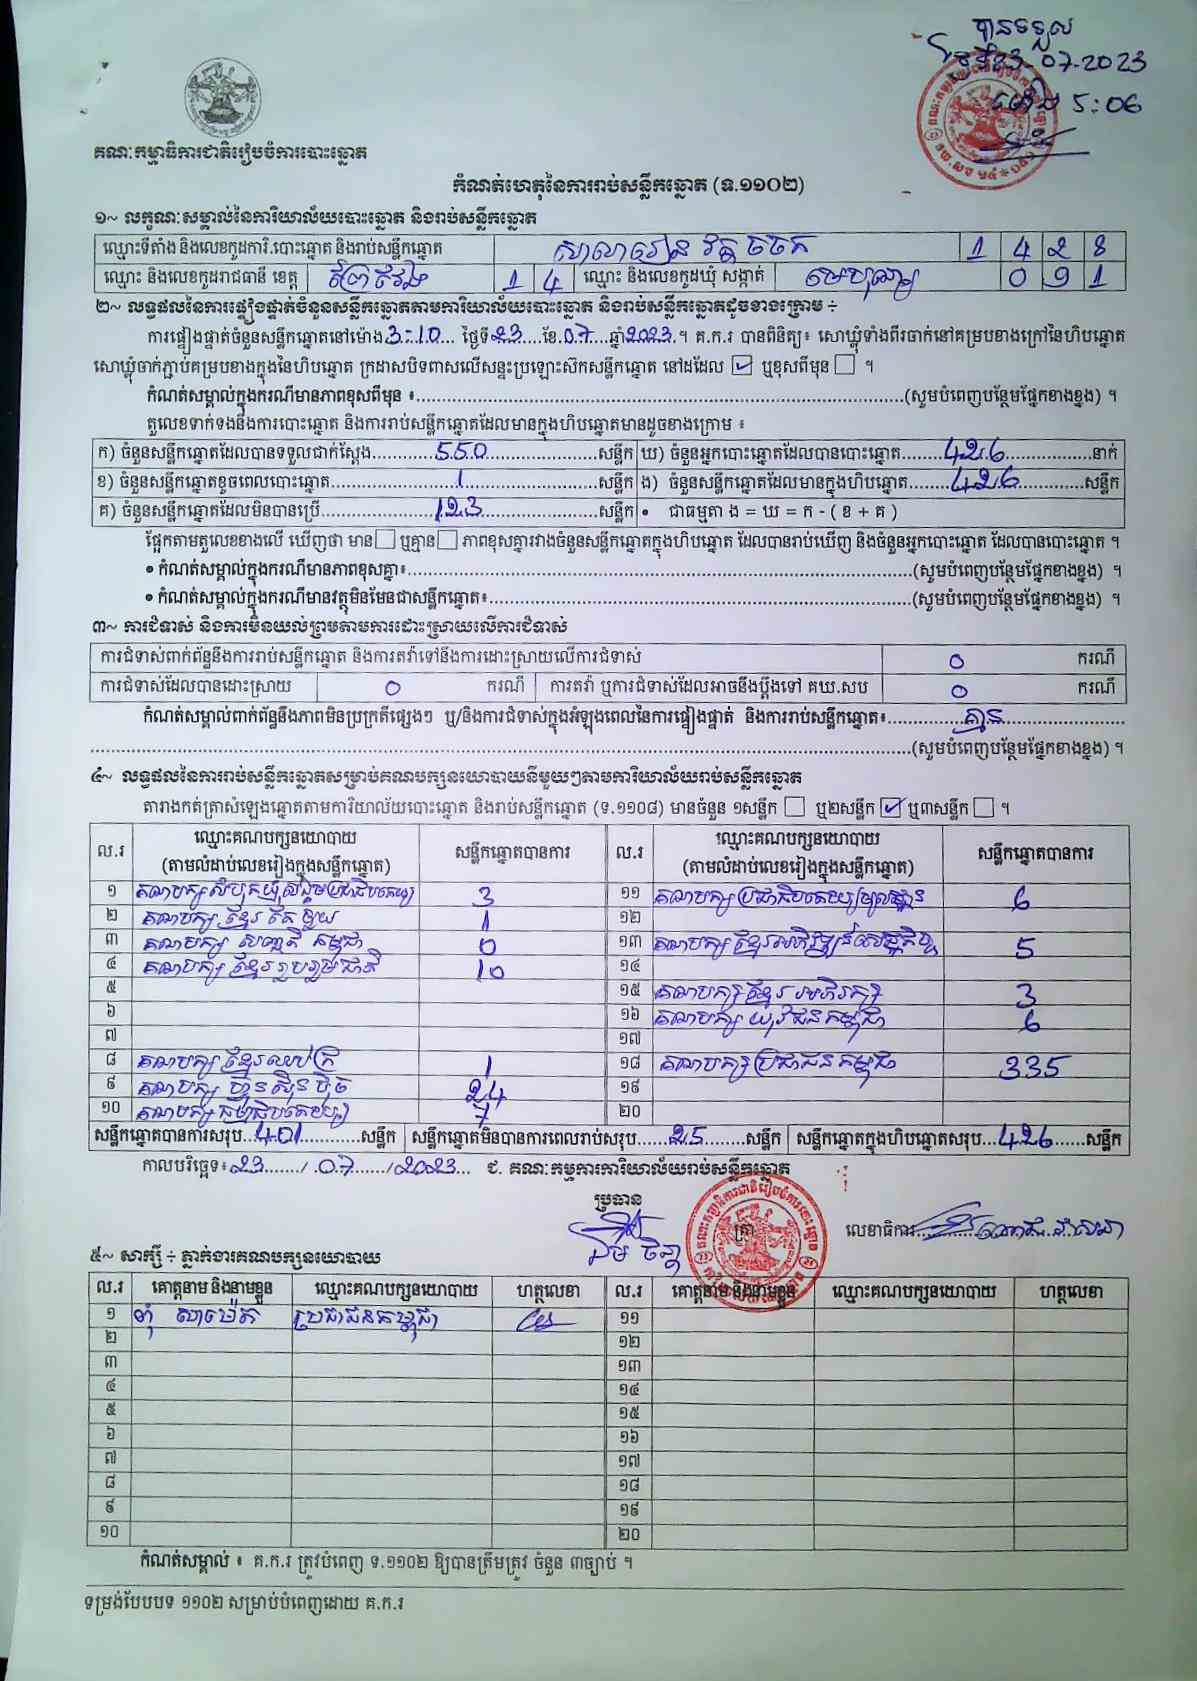 បានទទួល
ថ្ងៃទី23-07-2023
ម៉ោង 5:06
គណៈកម្មាធិការជាតិរៀបចំការបោះឆ្នោត
កំណត់ហេតុនៃការរាប់សន្លឹកឆ្នោត (ទ.១១០២)
១~ លក្ខណៈសម្គាល់នៃការិយាល័យបោះឆ្នោត និងរាប់សន្លឹកឆ្នោត
ឈ្មោះទីតាំង និងលេខកូដការិ.បោះឆ្នោត និងរាប់សន្លឹកឆ្នោត សាលារៀន វត្តចចក 1 4 2 8
ឈ្មោះ និងលេខកូដរាជធានី ខេត្ត ព្រៃវែង 1 4 ឈ្មោះ និងលេខកូដឃុំ សង្កាត់ មេបុណ្យ 0 9 1
២~ លទ្ធផលនៃការផ្ទៀងផ្ទាត់ចំនួនសន្លឹកឆ្នោតតាមការិយាល័យបោះឆ្នោត និងរាប់សន្លឹកឆ្នោតដូចខាងក្រោម ÷
ការផ្ទៀងផ្ទាត់ចំនួនសន្លឹកឆ្នោតនៅម៉ោង 3:10 ថ្ងៃទី 23 ខែ 07 ឆ្នាំ 2023 ។ គ.ក.រ បានពិនិត្យ៖ សោឃ្លុំទាំងពីរចាក់នៅគម្របខាងក្រៅនៃហិបឆ្នោត
សោឃ្លុំចាក់ភ្ជាប់គម្របខាងក្នុងនៃហិបឆ្នោត ក្រដាសបិទពាសលើសន្ទះប្រឡោះស៊កសន្លឹកឆ្នោត នៅដដែល ☑ ឬខុសពីមុន ☐ ។
កំណត់សម្គាល់ក្នុងករណីមានភាពខុសពីមុន ៖ (សូមបំពេញបន្ថែមផ្នែកខាងខ្នង) ។
តួលេខទាក់ទងនឹងការបោះឆ្នោត និងការរាប់សន្លឹកឆ្នោតដែលមានក្នុងហិបឆ្នោតមានដូចខាងក្រោម ៖
ក) ចំនួនសន្លឹកឆ្នោតដែលបានទទួលជាក់ស្តែង 550 សន្លឹក ឃ) ចំនួនអ្នកបោះឆ្នោតដែលបានបោះឆ្នោត 426 នាក់
ខ) ចំនួនសន្លឹកឆ្នោតខូចពេលបោះឆ្នោត 1 សន្លឹក ង) ចំនួនសន្លឹកឆ្នោតដែលមានក្នុងហិបឆ្នោត 426 សន្លឹក
គ) ចំនួនសន្លឹកឆ្នោតដែលមិនបានប្រើ 123 សន្លឹក • ជាធម្មតា ង = ឃ = ក - ( ខ + គ )
ផ្អែកតាមតួលេខខាងលើ ឃើញថា មាន ☐ ឬគ្មាន ☐ ភាពខុសគ្នារវាងចំនួនសន្លឹកឆ្នោតក្នុងហិបឆ្នោត ដែលបានរាប់ឃើញ និងចំនួនអ្នកបោះឆ្នោត ដែលបានបោះឆ្នោត ។
• កំណត់សម្គាល់ក្នុងករណីមានភាពខុសគ្នា៖ (សូមបំពេញបន្ថែមផ្នែកខាងខ្នង) ។
• កំណត់សម្គាល់ក្នុងករណីមានវត្ថុមិនមែនជាសន្លឹកឆ្នោត៖ (សូមបំពេញបន្ថែមផ្នែកខាងខ្នង) ។
៣~ ការជំទាស់ និងការមិនយល់ព្រមតាមការដោះស្រាយលើការជំទាស់
ការជំទាស់ពាក់ព័ន្ធនឹងការរាប់សន្លឹកឆ្នោត និងការតវ៉ាទៅនឹងការដោះស្រាយលើការជំទាស់ 0 ករណី
ការជំទាស់ដែលបានដោះស្រាយ 0 ករណី ការតវ៉ា ឬការជំទាស់ដែលអាចនឹងប្តឹងទៅ គឃ.សប 0 ករណី
កំណត់សម្គាល់ពាក់ព័ន្ធនឹងភាពមិនប្រក្រតីផ្សេងៗ ឬ/និងការជំទាស់ក្នុងអំឡុងពេលនៃការផ្ទៀងផ្ទាត់ និងការរាប់សន្លឹកឆ្នោត៖ គ្មាន
(សូមបំពេញបន្ថែមផ្នែកខាងខ្នង) ។
៤~ លទ្ធផលនៃការរាប់សន្លឹកឆ្នោតសម្រាប់គណបក្សនយោបាយនីមួយៗតាមការិយាល័យរាប់សន្លឹកឆ្នោត
តារាងកត់ត្រាសំឡេងឆ្នោតតាមការិយាល័យបោះឆ្នោត និងរាប់សន្លឹកឆ្នោត (ទ.១១០៨) មានចំនួន ១សន្លឹក ☐ ឬ២សន្លឹក ☑ ឬ៣សន្លឹក ☐ ។
ល.រ ឈ្មោះគណបក្សនយោបាយ (តាមលំដាប់លេខរៀងក្នុងសន្លឹកឆ្នោត) សន្លឹកឆ្នោតបានការ ល.រ ឈ្មោះគណបក្សនយោបាយ (តាមលំដាប់លេខរៀងក្នុងសន្លឹកឆ្នោត) សន្លឹកឆ្នោតបានការ
១ គណបក្សសំបុកឃ្មុំសង្គមប្រជាធិបតេយ្យ 3 ១១ គណបក្សប្រជាធិបតេយ្យមូលដ្ឋាន 6
២ គណបក្ស ខ្មែរតែមួយ 1 ១២
៣ គណបក្ស សញ្ជាតិ កម្ពុជា 0 ១៣ គណបក្សខ្មែរអភិវឌ្ឍន៍សេដ្ឋកិច្ច 5
៤ គណបក្ស ខ្មែររួបរួមជាតិ 10 ១៤
៥ ១៥ គណបក្សខ្មែរអភិរក្ស 3
៦ ១៦ គណបក្ស យុវជនកម្ពុជា 6
៧ ១៧
៨ គណបក្ស ខ្មែរឈប់ក្រ 1 ១៨ គណបក្សប្រជាជនកម្ពុជា 335
៩ គណបក្ស ហ្វ៊ុនស៊ិនប៉ិច 24 ១៩
១០ គណបក្ស ធម្មាធិបតេយ្យ 7 ២០
សន្លឹកឆ្នោតបានការសរុប 401 សន្លឹក សន្លឹកឆ្នោតមិនបានការពេលរាប់សរុប 25 សន្លឹក សន្លឹកឆ្នោតក្នុងហិបឆ្នោតសរុប 426 សន្លឹក
កាលបរិច្ឆេទ៖ 23 / 07 / 2023 ជ. គណៈកម្មការការិយាល័យរាប់សន្លឹកឆ្នោត
ប្រធាន
ត្រា លេខាធិការ
៥~ សាក្សី ÷ ភ្នាក់ងារគណបក្សនយោបាយ
ល.រ គោត្តនាម និងនាមខ្លួន ឈ្មោះគណបក្សនយោបាយ ហត្ថលេខា ល.រ គោត្តនាម និងនាមខ្លួន ឈ្មោះគណបក្សនយោបាយ ហត្ថលេខា
១ ប្រជាជនកម្ពុជា ១១
២ ១២
៣ ១៣
៤ ១៤
៥ ១៥
៦ ១៦
៧ ១៧
៨ ១៨
៩ ១៩
១០ ២០
កំណត់សម្គាល់ ៖ គ.ក.រ ត្រូវបំពេញ ទ.១១០២ ឱ្យបានត្រឹមត្រូវ ចំនួន ៣ច្បាប់ ។
ទម្រង់បែបបទ ១១០២ សម្រាប់បំពេញដោយ គ.ក.រ